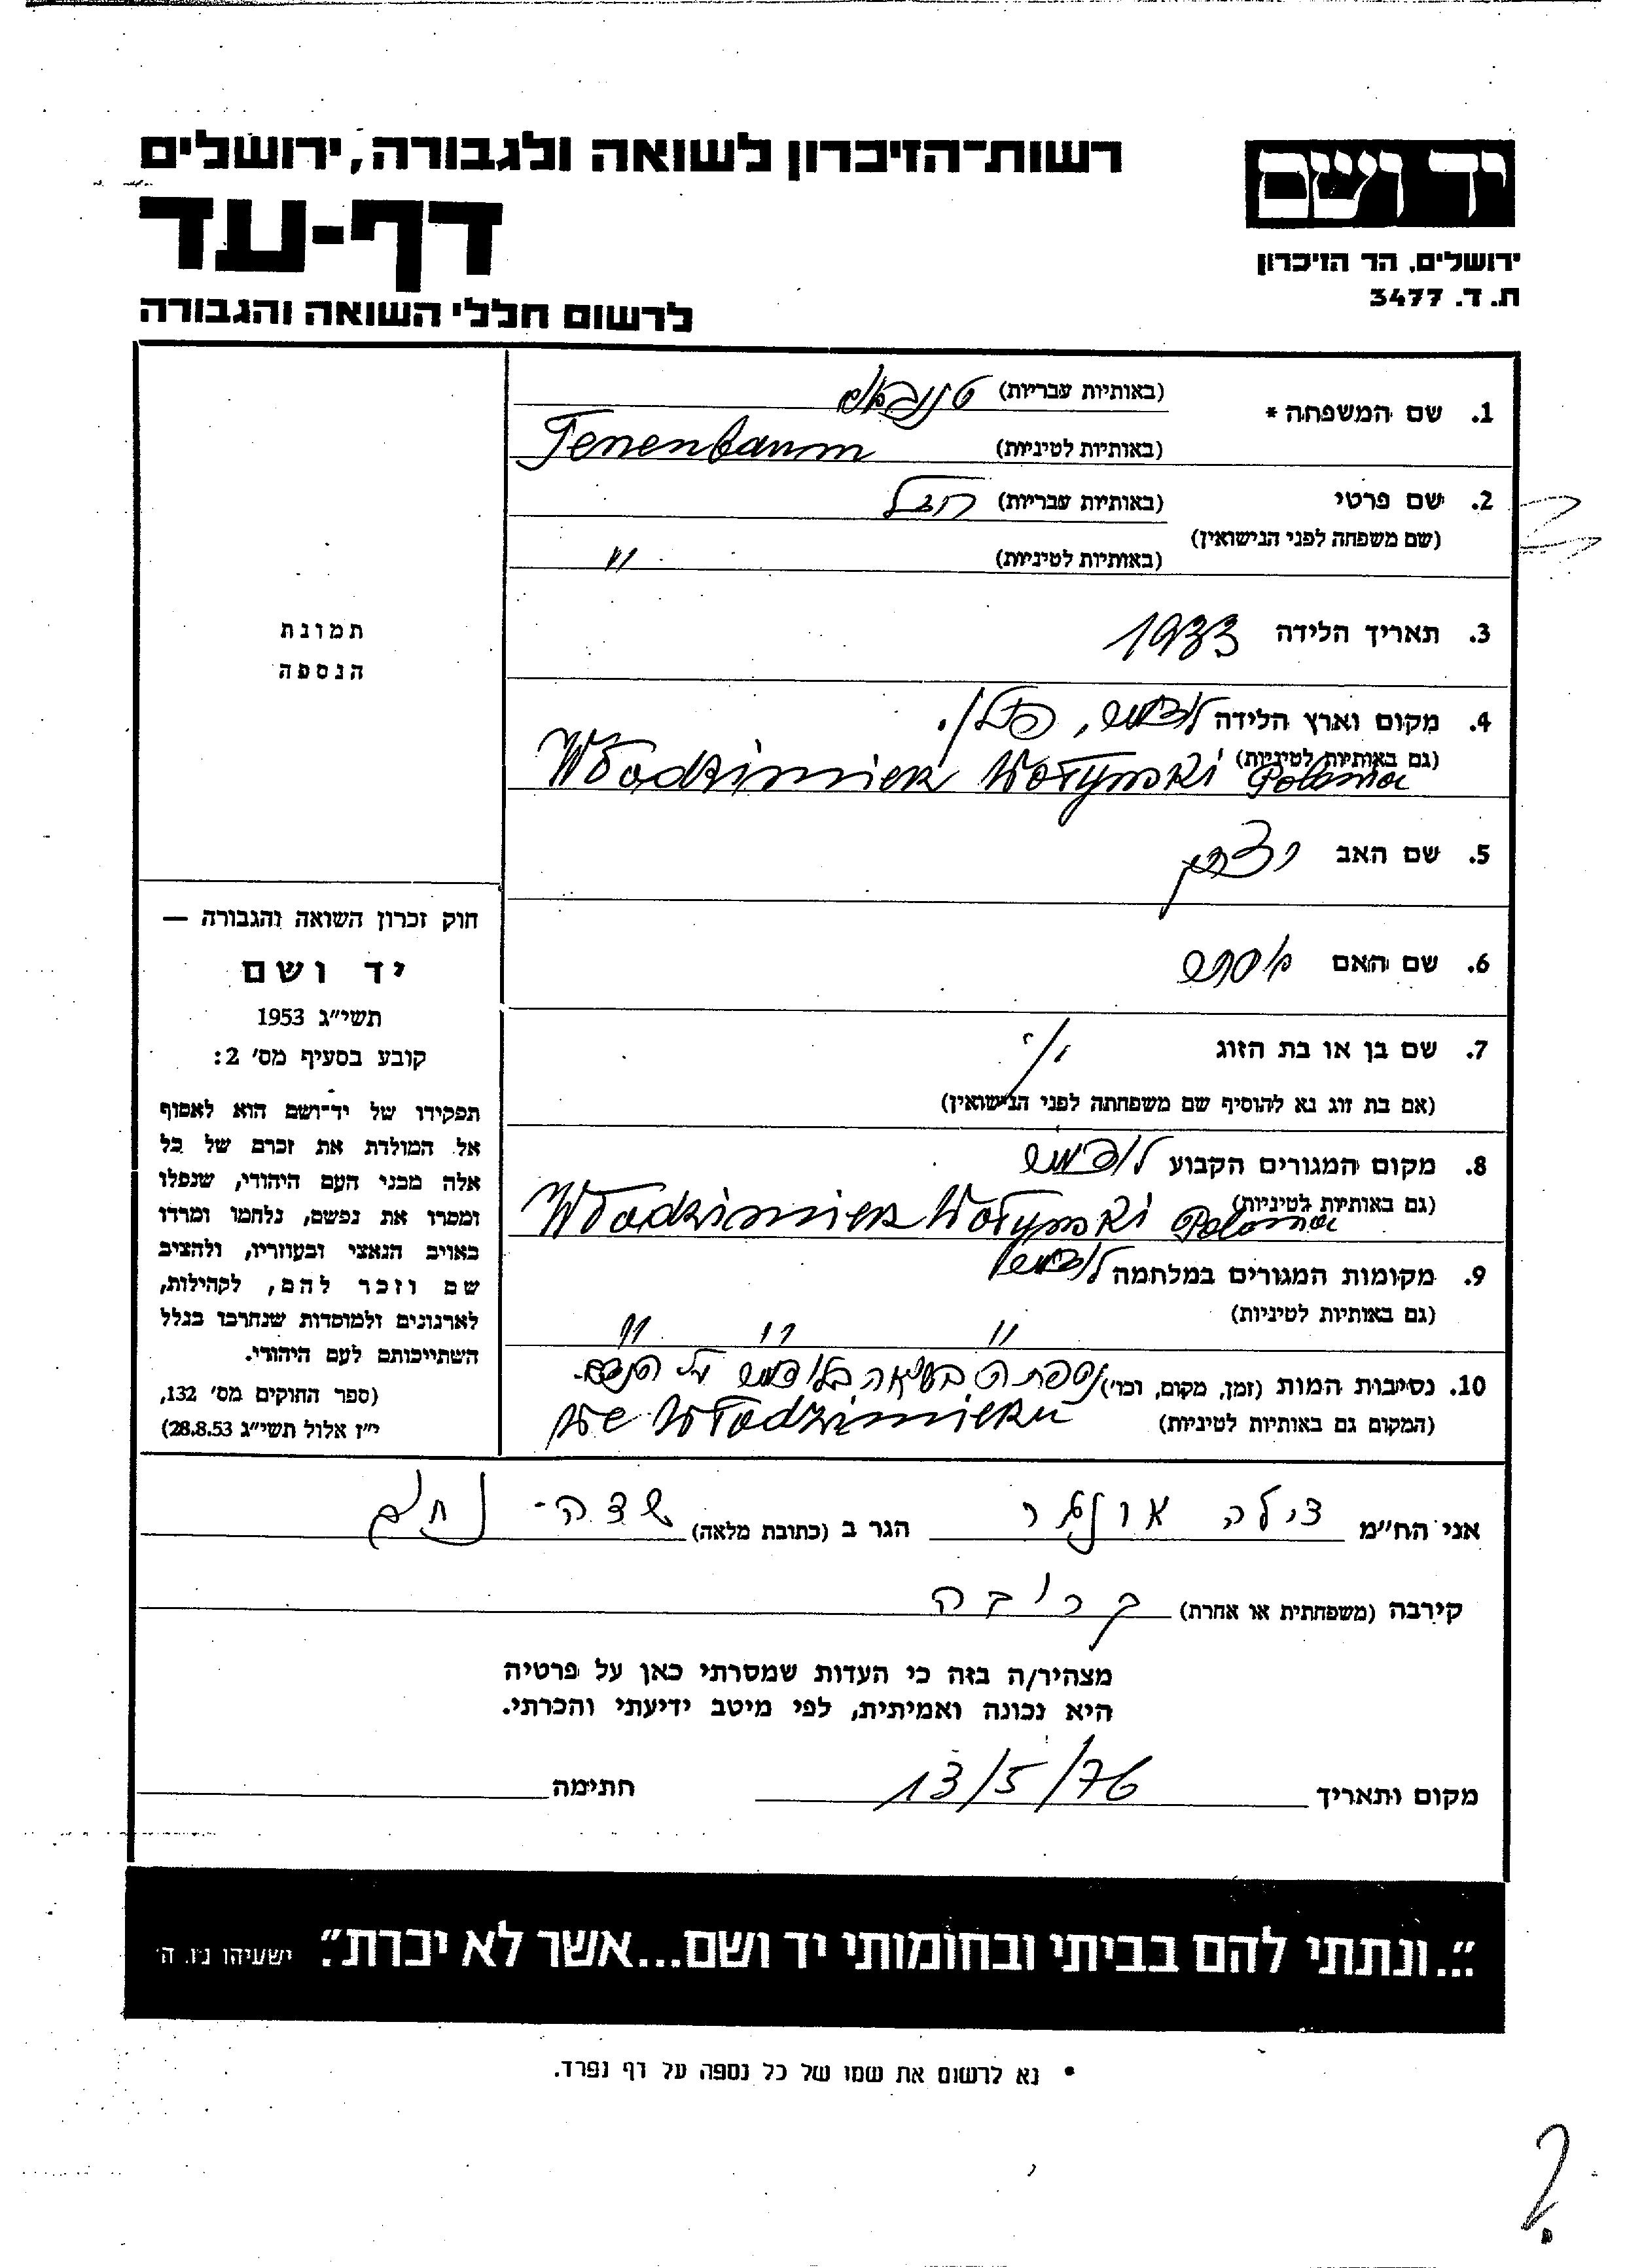 רשות-הזיכרון לשואה ולגבורה, ירושלים
יד ושם
דף-עד
ירושלים, הר הזיכרון
ת. ד. 3477
לרשום חללי השואה והגבורה
1. שם המשפחה * (באותיות עבריות)
(באותיות לטיניות) Tenenbaum
2. שם פרטי (באותיות עבריות) רחל
(שם משפחה לפני הנישואין)
(באותיות לטיניות) "
3. תאריך הלידה 1933
4. מקום וארץ הלידה לודמיר, פולין.
(גם באותיות לטיניות) Włodzimierz Wołyński Polonia
5. שם האב יצחק
6. שם האם
7. שם בן או בת הזוג
(אם בת זוג נא להוסיף שם משפחתה לפני הנישואין)
8. מקום המגורים הקבוע לודמיר
(גם באותיות לטיניות) Włodzimierz Wołyński Polonia
9. מקומות המגורים במלחמה לודמיר
(גם באותיות לטיניות) " " "
10. נסיבות המות (זמן, מקום, וכו') נספתה בשואה בלודמיר
(המקום גם באותיות לטיניות) we Włodzimierzu
תמונת
הנספה
חוק זכרון השואה והגבורה —
יד ושם
תשי"ג 1953
קובע בסעיף מס' 2:
תפקידו של יד-ושם הוא לאסוף
אל המולדת את זכרם של כל
אלה מבני העם היהודי, שנפלו
ומסרו את נפשם, נלחמו ומרדו
באויב הנאצי ובעוזריו, ולהציב
שם וזכר להם, לקהילות,
לארגונים ולמוסדות שנחרבו בגלל
השתייכותם לעם היהודי.
(ספר החוקים מס' 132,
י"ז אלול תשי"ג 28.8.53)
אני הח"מ צילה אונגר הגר ב (כתובת מלאה) שדה-נחום
קירבה (משפחתית או אחרת) קרובה
מצהיר/ה בזה כי העדות שמסרתי כאן על פרטיה
היא נכונה ואמיתית, לפי מיטב ידיעתי והכרתי.
מקום ותאריך 13/5/76 חתימה
"...ונתתי להם בביתי ובחומותי יד ושם...אשר לא יכרת". ישעיהו נ"ו. ה'
* נא לרשום את שמו של כל נספה על דף נפרד.
?